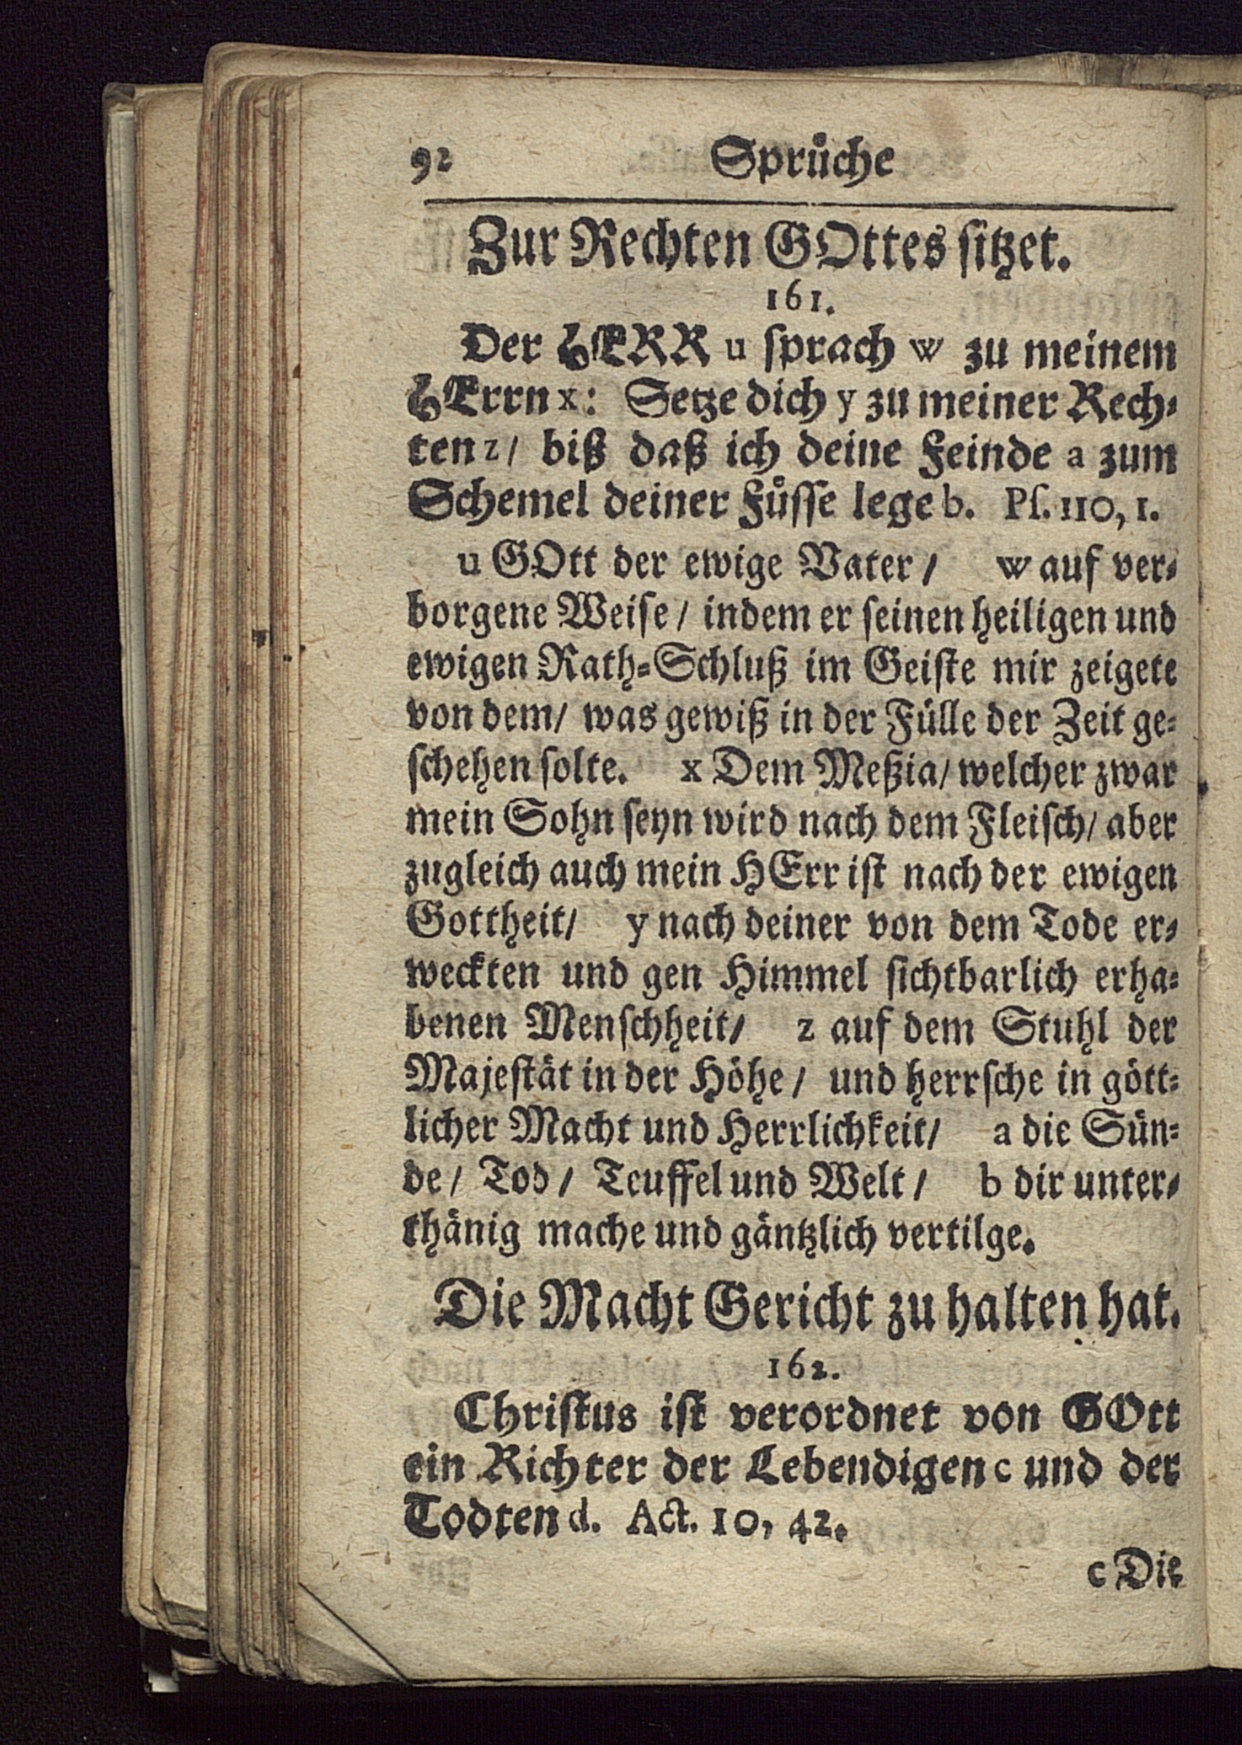 92 Sprüche
Zur Rechten GOttes sitzet.
161.
Der HERR u sprach w zu meinem
HErrn x: Setze dich y zu meiner Rech-
ten z/ biß daß ich deine Feinde a zum
Schemel deiner Füsse lege b. Ps. 110, 1.
u GOtt der ewige Vater/ w auf ver-
borgene Weise/ indem er seinen heiligen und
ewigen Rath-Schluß im Geiste mir zeigete
von dem/ was gewiß in der Fülle der Zeit ge-
schehen solte. x Dem Meßia/ welcher zwar
mein Sohn seyn wird nach dem Fleisch/ aber
zugleich auch mein HErr ist nach der ewigen
Gottheit/ y nach deiner von dem Tode er-
weckten und gen Himmel sichtbarlich erha-
benen Menschheit/ z auf dem Stuhl der
Majestät in der Höhe/ und herrsche in gött-
licher Macht und Herrlichkeit/ a die Sün-
de/ Tod/ Teuffel und Welt/ b dir unter-
thänig mache und gäntzlich vertilge.
Die Macht Gericht zu halten hat.
162.
Christus ist verordnet von GOtt
ein Richter der Lebendigen c und der
Todten d. Act. 10, 42.
c Die